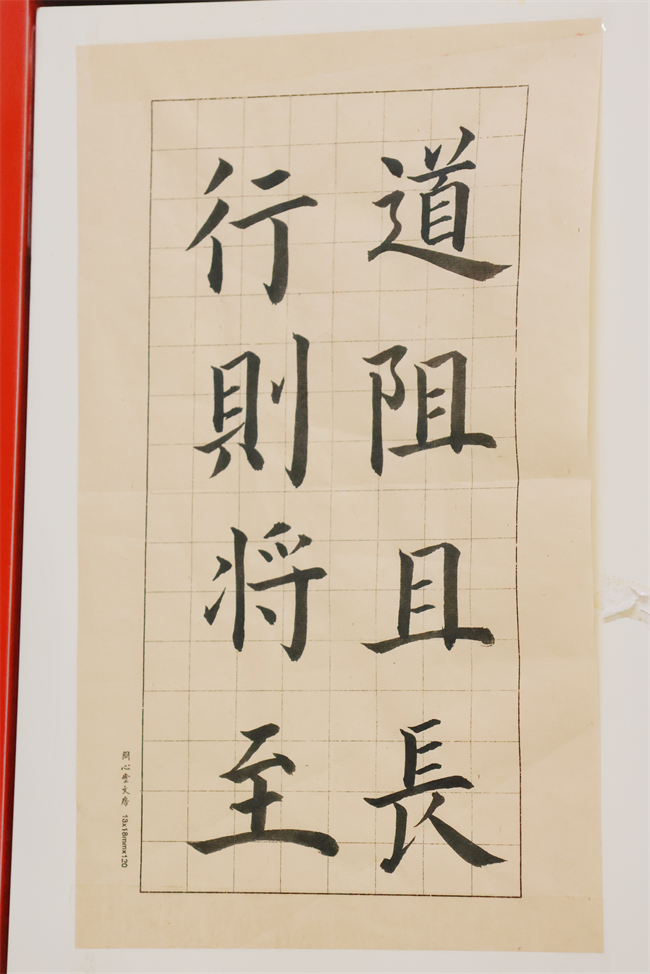 道阻且長
行則将至
同心堂文房 13x18mmx120